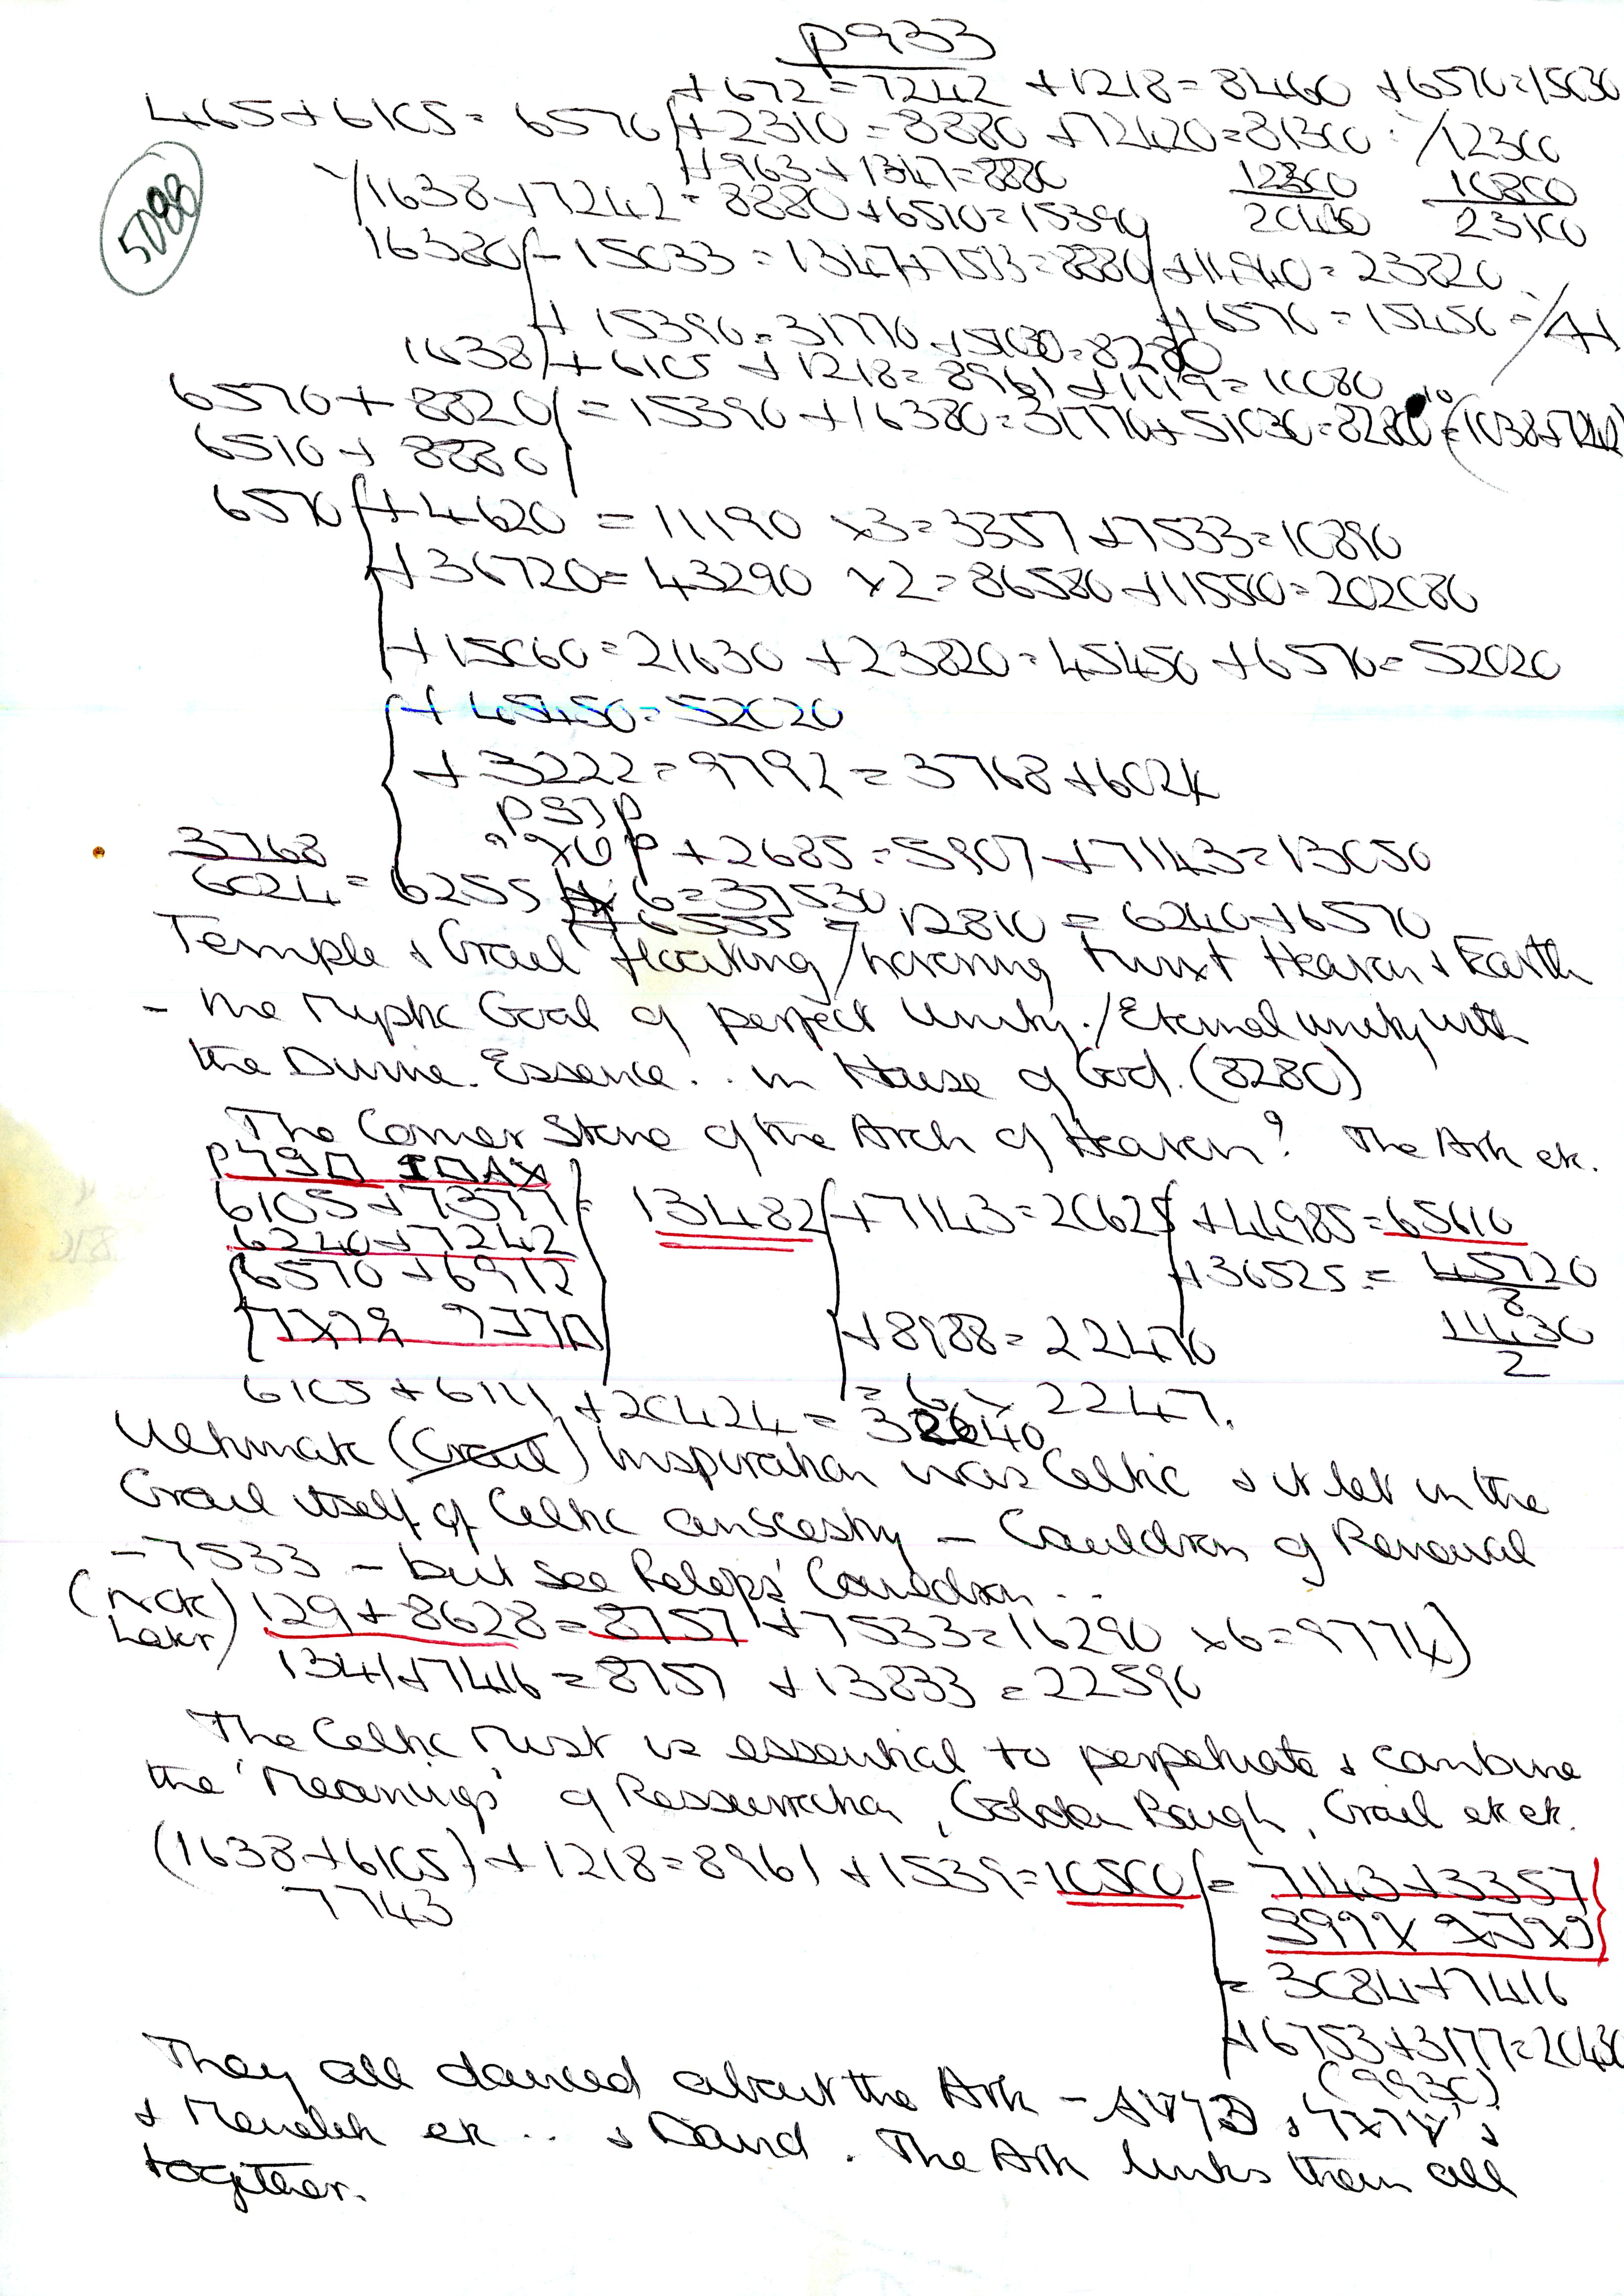 p933
+ 672 = 7242 + 1218 = 8460 + 6570 = 15030
465 + 6105 = 6570 + 2310 = 8880 + 72420 = 81300 = /12300
+ 963 + 1347 = 8880
5098
/1638 + 7242 = 8880 + 6510 = 15390
12300 10800
20430 23100
16380 - 15033 = 1347 + 7533 = 8880 + 14940 = 23820
+ 15390 = 31770 + 51030 = 8280 + 6570 = 15450 =
1638 + 6105 + 1218 = 8961 + 1119 = 10080
6570 + 8820 = 15390 + 16380 = 31770 + 51030 = 8280 = (1038 + 7242)
6510 + 8880
6570 + 4620 = 11190 x 3 = 3357 + 7533 = 10890
+ 36720 = 43290 x 2 = 86580 + 115500 = 202080
+ 15060 = 21630 + 23820 = 45450 + 6570 = 52020
+ 45450 = 52020
+ 3222 = 9792 = 3768 + 6024
+ 2685 = 5907 + 7143 = 13050
3768
6024 = 6255 x 6 = 37530
+ 6555 = 12810 = 6240 + 6570
Temple & Grail floating/hovering twixt Heaven & Earth
- the Mystic Goal of perfect Unity./Eternal unity with
the Divine Essence... in House of God. (8280)
The Corner Stone of the Arch of Heaven? The Ark etc.
6105 + 7377 = 13482 + 7143 = 20625 + 44985 = 65610
6240 + 7242
6570 + 6912 + 36525 = 45720
8
+ 8988 = 22470 11430
2
6105 + 6141 + 20424 = 32640 = 6 x 2247.
Ultimate (Grail) Inspiration was Celtic & it let in the
Grail itself of Celtic anscestry - Cauldron of Renewal
- 7533 - but see Pelops' Cauldron...
129 + 8628 = 8757 + 7533 = 16290 x 6 = 9774)
1341 + 7416 = 8757 + 13833 = 22590
The Celtic Mist is essential to perpetuate & combine
the 'Meanings' of Ressurrection, Golden Bough, Grail etc etc.
(1638 + 6105) + 1218 = 8961 + 1539 = 10500 = 7143 + 3357
7743
= 3084 + 7416
+ 6753 + 3177 = 20430
(9930)
They all danced about the Ark -
& Menelik etc .. & David. The Ark links them all
together.